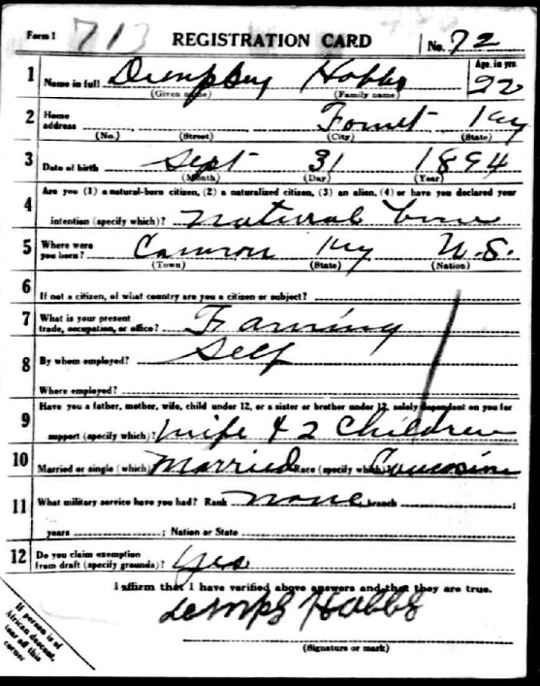 Form 1 713 REGISTRATION CARD No. 72
1 Name in full Dempsey Hobbs Age, in yrs. 22
(Given name) (Family name)
2 Home address Ky
(No.) (Street) (City) (State)
3 Date of birth Sept 31 1894
(Month) (Day) (Year)
4 Are you (1) a natural-born citizen, (2) a naturalized citizen, (3) an alien, (4) or have you declared your
intention (specify which)? Natural
5 Where were you born? Ky U.S.
(Town) (State) (Nation)
6 If not a citizen, of what country are you a citizen or subject?
7 What is your present trade, occupation, or office? Farming
8 By whom employed? Self
Where employed?
9 Have you a father, mother, wife, child under 12, or a sister or brother under 12, solely dependent on you for
support (specify which)? Wife & 2 Children
10 Married or single (which) Married Race (specify which)
11 What military service have you had? Rank None branch ;
years ; Nation or State
12 Do you claim exemption from draft (specify grounds)? Yes
I affirm that I have verified above answers and that they are true.
demps Hobbs
(Signature or mark)
If person is of
African descent,
tear off this
corner